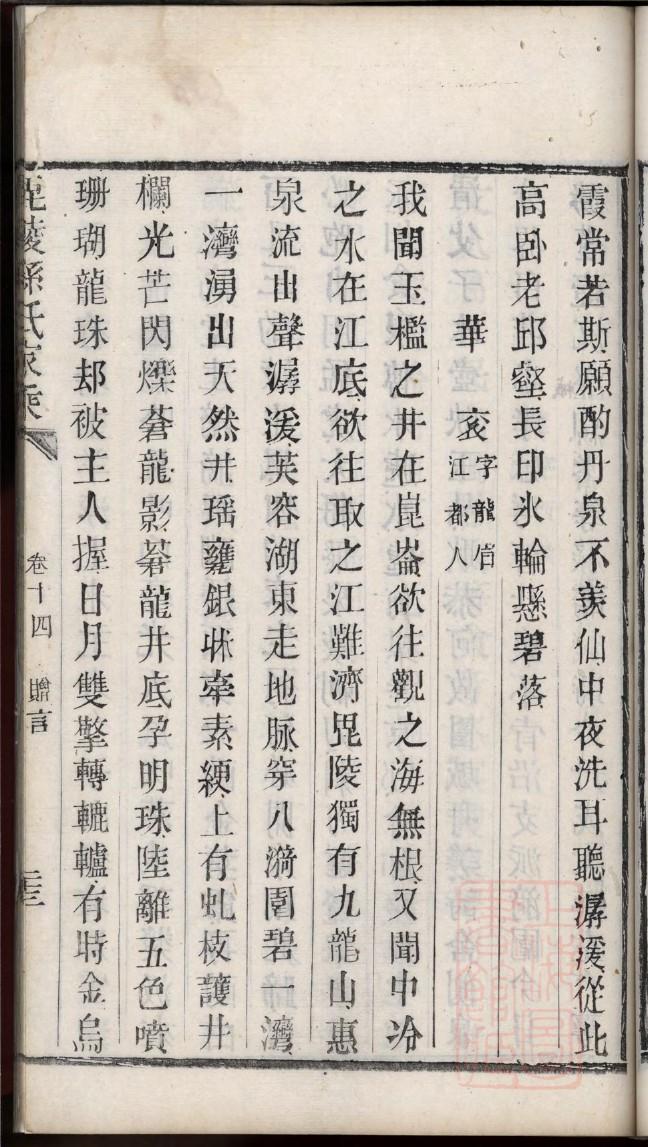 霞常若斯願酌丹泉不羨仙中夜洗耳聽潺湲從此
高卧老邱壑長印氷輪懸碧落
華袞字龍眉江都人
我聞玉檻之井在崑崙欲往觀之海無根又聞中泠
之水在江底欲往取之江難濟毘陵獨有九龍山惠
泉流出聲潺湲芙容湖東走地脉穿八漪圍碧一灣
一灣湧出天然井瑶甕銀牀牽素綆上有虬枝護井
欄光芒閃爍蒼龍影蒼龍井底孕明珠陸離五色噴
珊瑚龍珠却被主人握日月雙擎轉轆轤有時金烏
毘陵孫氏家乘
卷十四 贈言
二十三